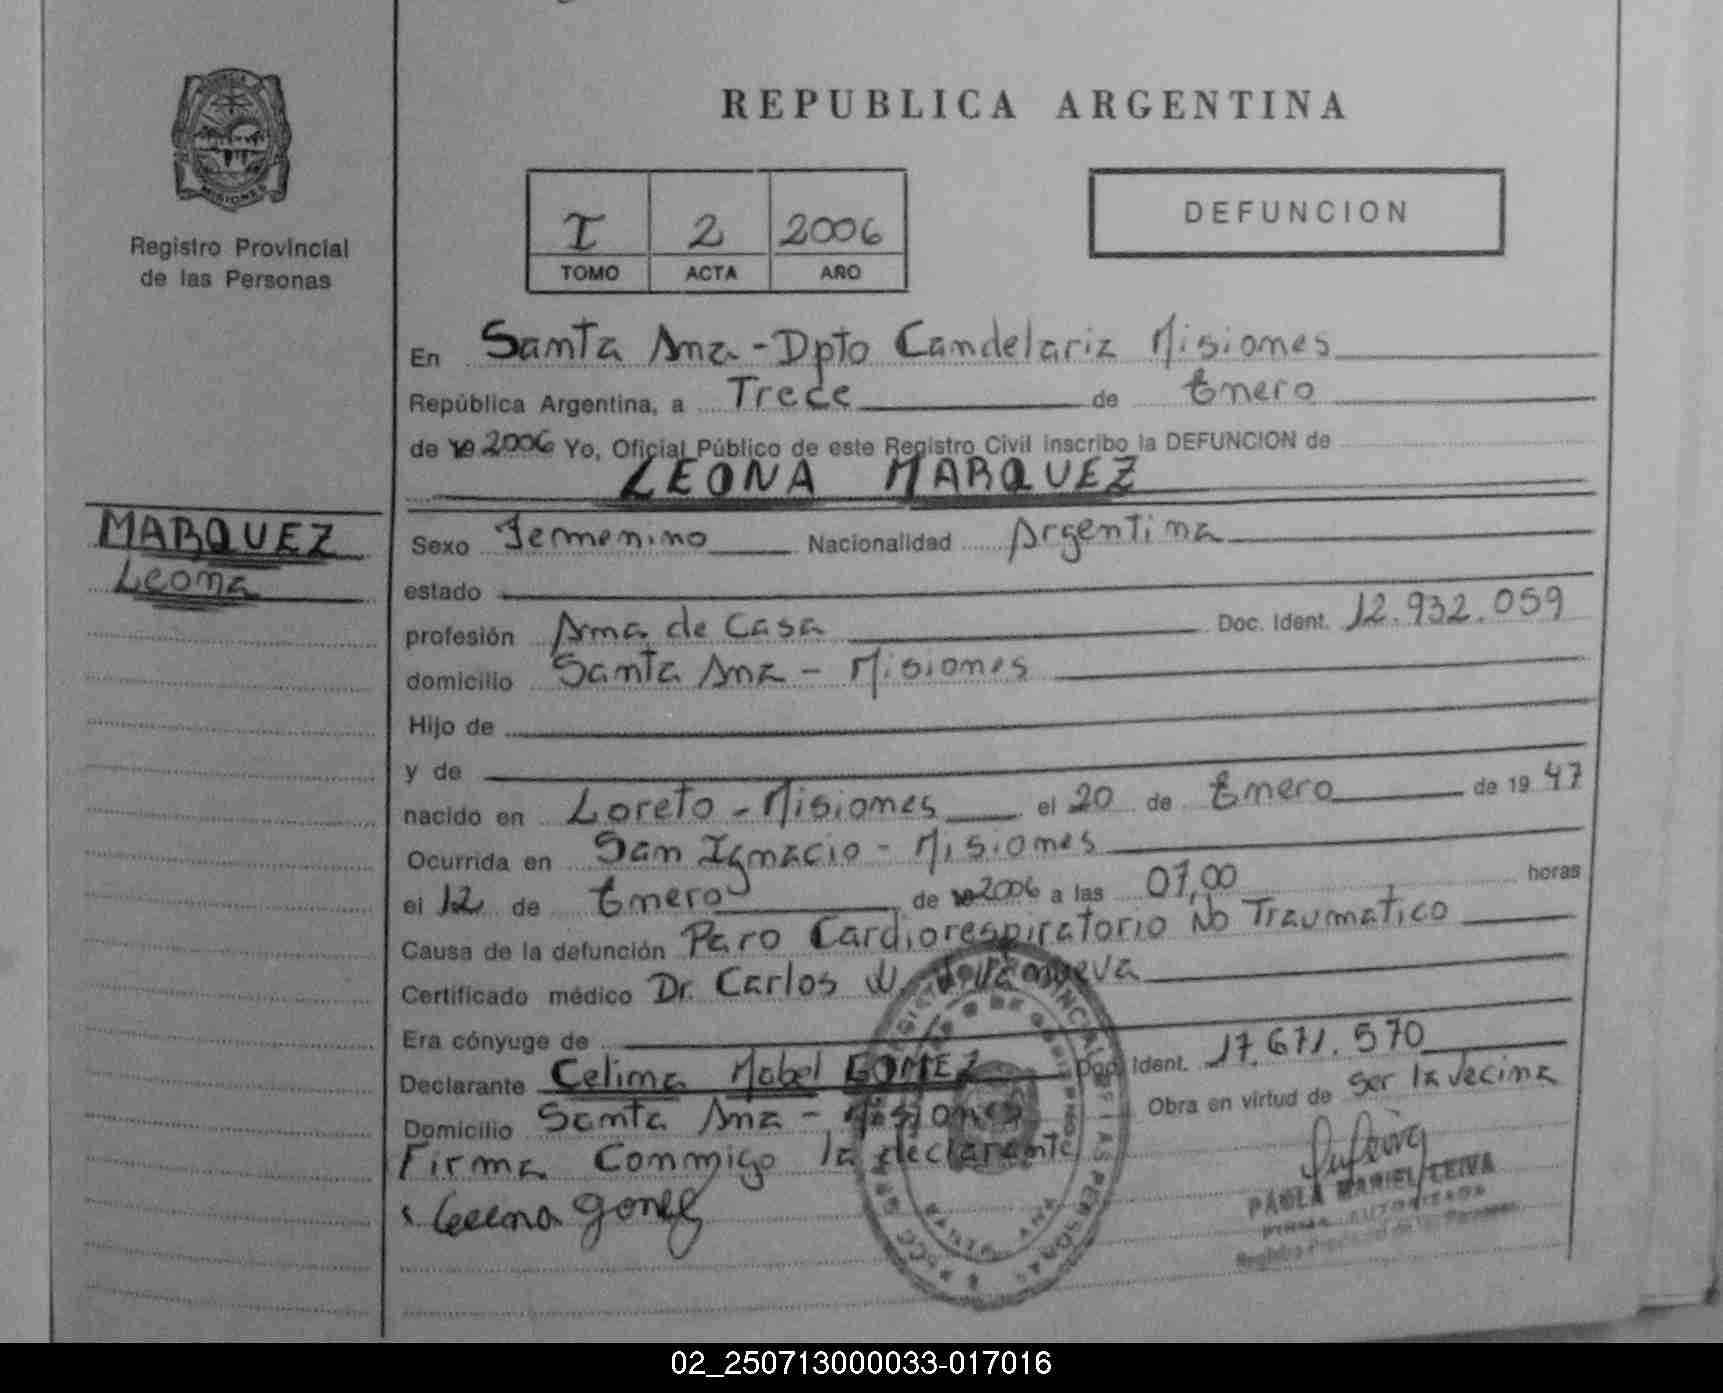 REPUBLICA ARGENTINA
MISIONES
Registro Provincial
de las Personas
I 2 2006
TOMO ACTA AÑO
DEFUNCION
En Santa Ana - Dpto Candelaria Misiones
República Argentina, a Trece de Enero
de 19 2006 Yo, Oficial Público de este Registro Civil inscribo la DEFUNCION de
LEONA MARQUEZ
MARQUEZ
Leona
Sexo Femenino Nacionalidad Argentina
estado
profesión Ama de Casa Doc. Ident. 12.932.059
domicilio Santa Ana - Misiones
Hijo de
y de
nacido en Loreto - Misiones el 20 de Enero de 19 47
Ocurrida en San Ignacio - Misiones
el 12 de Enero de 19 2006 a las 07,00 horas
Causa de la defunción Paro Cardiorespiratorio No Traumatico
Certificado médico Dr. Carlos V. Villanueva
Era cónyuge de
Declarante Celina Mabel GOMEZ Doc. Ident. 17.671.570
Domicilio Santa Ana - Misiones Obra en virtud de ser la vecina
Firma Conmigo la declarante
PAOLA MARIEL LEIVA
FIRMA AUTORIZADA
Registro Provincial de las Personas
SANTA ANA
02_250713000033-017016